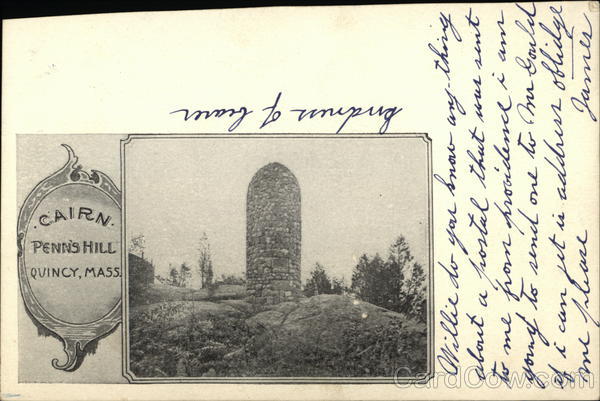 Kindness of bearer
CAIRN
PENN'S HILL
QUINCY, MASS.
Willie do you know any-thing
about a postal that was sent
to me from providence i am
going to send one to Mr Gould
if i can get is address oblidge
me please James
CardCow.com